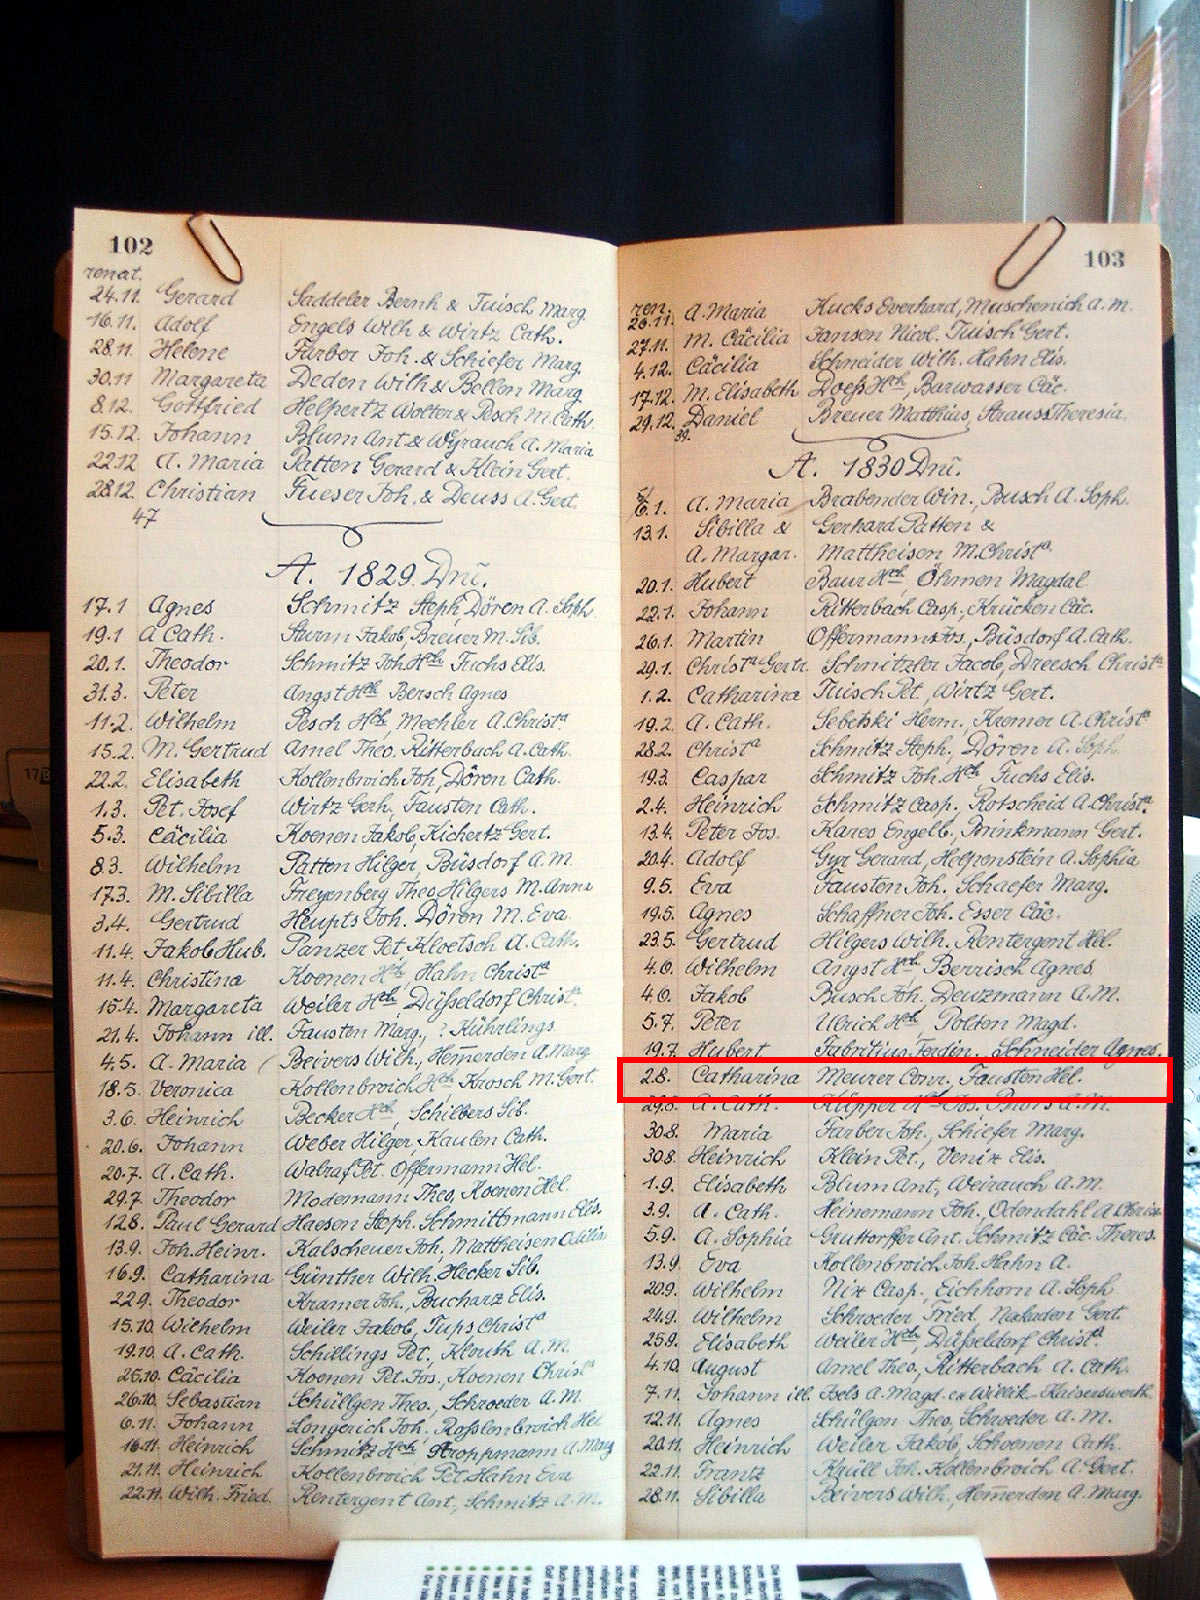 102
renat.
24.11. Gerard Saddeler Bernh & Tuisch Marg.
16.11. Adolf Engels Wilh & Wirtz Cath.
28.11. Helene Färber Joh. & Schiefer Marg.
30.11 Margareta Deden Wilh & Bollen Marg.
8.12. Gottfried Helpertz Wolter & Pesch M. Cath.
15.12. Johann Blum Ant & Weyrauch A. Maria
22.12 A. Maria Patten Gerard & Klein Gert.
28.12. Christian Fueser Joh. & Deuss A. Gert.
47
A. 1829. Dnī.
17.1 Agnes Schmitz Steph, Dören A. Soph
19.1 A Cath. Sturm Jakob, Breuer M. Sib.
20.1. Theodor Schmitz Joh. Hch Fuchs Elis.
31.3. Peter Angst Hch Bersch Agnes
11.2. Wilhelm Pesch Hch, Moehler A. Christa
15.2. M. Gertrud Amel Theo. Ritterbach A. Cath.
22.2. Elisabeth Kollenbroich Joh, Dören Cath.
1.3. Pet. Josef Wirtz Gerh, Fausten Cath.
5.3. Cäcilia Koenen Jakob, Kichertz Gert.
8.3. Wilhelm Patten Hilger, Büsdorf A. M.
17.3. M. Sibilla Freyenberg Theo Hilgers M. Anna
3.4. Gertrud Heupts Joh. Dören M. Eva
11.4. Jakob Hub. Panzer Pet Kloetsch A. Cath.
11.4. Christina Koenen Hch, Hahn Christa
15.4. Margareta Weiler Hch, Düsseldorf Christa.
21.4. Johann ill. Fausten Marg., ? Kührlings
4.5. A. Maria Beivers Wilh, Hem̅erden A. Marg
18.5. Veronica Kollenbroich Hch, Krosch M. Gert.
3.6. Heinrich Becker Hch, Schilbers Sib.
20.6. Johann Weber Hilger, Kaulen Cath.
20.7. A. Cath. Walraf Pet. Offermann Hel.
29.7 Theodor Modemann Theo, Koenen Hel.
12.8. Paul Gerard Haesen Steph. Schmittmann Elis.
13.9. Joh. Heinr. Kalscheuer Joh, Mattheisen
16.9. Catharina Günther Wilh. Hecker Sib.
22.9. Theodor Kramer Joh., Bucharz Elis.
15.10. Wilhelm Weiler Jakob, Tups Christa
19.10. A. Cath. Schillings Pet., Klouth A. M.
25.10. Cäcilia Koenen Pet. Jos., Koenen Christa
26.10. Sebastian Schüllgen Theo., Schroeder A. M.
6.11. Johann Longerich Joh, Rosslenbroich Hel
16.11. Heinrich Schmitz Hch Stroppmann A. Marg
21.11. Heinrich Kollenbroich Pet. Hahn Eva
22.11. Wilh. Fried. Rentergent Ant., Schmitz A. M.
103
ren.
26.11. A. Maria Kucks Everhard, Muschenich A. M.
27.11. M. Cäcilia Jansen Nicol. Tuisch Gert.
4.12. Cäcilia Schneider Wilh. Hahn Elis.
17.12. M. Elisabeth Doess Hch, Barwasser Cäc.
29.12. Daniel Breuer Matthias, Strauss Theresia.
39.
A. 1830 Dnī.
6.1. A. Maria Brabender Win., Busch A. Soph.
13.1. Sibilla & Gerhard Patten &
A. Margar. Mattheisen M. Christa.
20.1 Hubert Baur Hch, Öhmen Magdal
22.1. Johann Ritterbach Casp., Krücken Cäc.
26.1. Martin Offermanns Jos., Büsdorf A. Cath.
29.1. Christa Gertr. Schmitzler Jacob, Dreesch Christa
1.2. Catharina Tuisch Pet, Wirtz Gert.
19.2. A. Cath. Sebetski Herm., Kremer A. Christa
28.2. Christa Schmitz Steph., Dören A. Soph.
19.3. Caspar Schmitz Joh. Hch Fuchs Elis.
2.4. Heinrich Schmitz Casp., Rotscheid A. Christa
13.4. Peter Jos. Kares Engelb, Brinkmann Gert.
20.4. Adolf Gyr Gerard, Helpenstein A. Sophia
9.5. Eva Fausten Joh. Schaefer Marg.
19.5. Agnes Schaffner Joh. Esser Cäc.
23.5. Gertrud Hilgers Wilh. Rentergent Hel.
4.6. Wilhelm Angst Hch. Berrisch Agnes
4.6. Jakob Busch Joh. Deuzmann A. M.
5.7. Peter Ulrich Hch, Polten Magd.
19.7. Hubert Fabritius Ferdin. Schneider Agnes.
2.8. Catharina Meurer Conr., Fausten Hel.
29.8. A. Cath. Küpper Hch Jos. A. M.
30.8. Maria Farber Joh., Schiefer Marg.
30.8. Heinrich Klein Pet., Venix Elis.
1.9. Elisabeth Blum Ant., Weirauch A. M.
3.9. A. Cath. Heinemann Joh., Odendahl A. Christ
5.9. A. Sophia Gruttorffer Ant. Schmitz Cäc. Theres.
13.9. Eva Kollenbroich Joh. Hahn A.
20.9. Wilhelm Nix Casp., Eichhorn A. Soph
24.9. Wilhelm Schroeder Fried. Neskaden Gert.
25.9. Elisabeth Weiler Hch, Düsseldorf Christa.
4.10. August Amel Theo., Ritterbach A. Cath.
7.11. Johann ill. Isels A. Magd. ex Willik-Kaiserswerth
12.11. Agnes Schülgen Theo, Schroeder A. M.
20.11. Heinrich Weiler Jakob, Schoenen Cath.
22.11. Frantz Krüll Joh. Kollenbroich A. Gert.
28.11. Sibilla Beivers Wilh., Hem̅erden A. Marg.